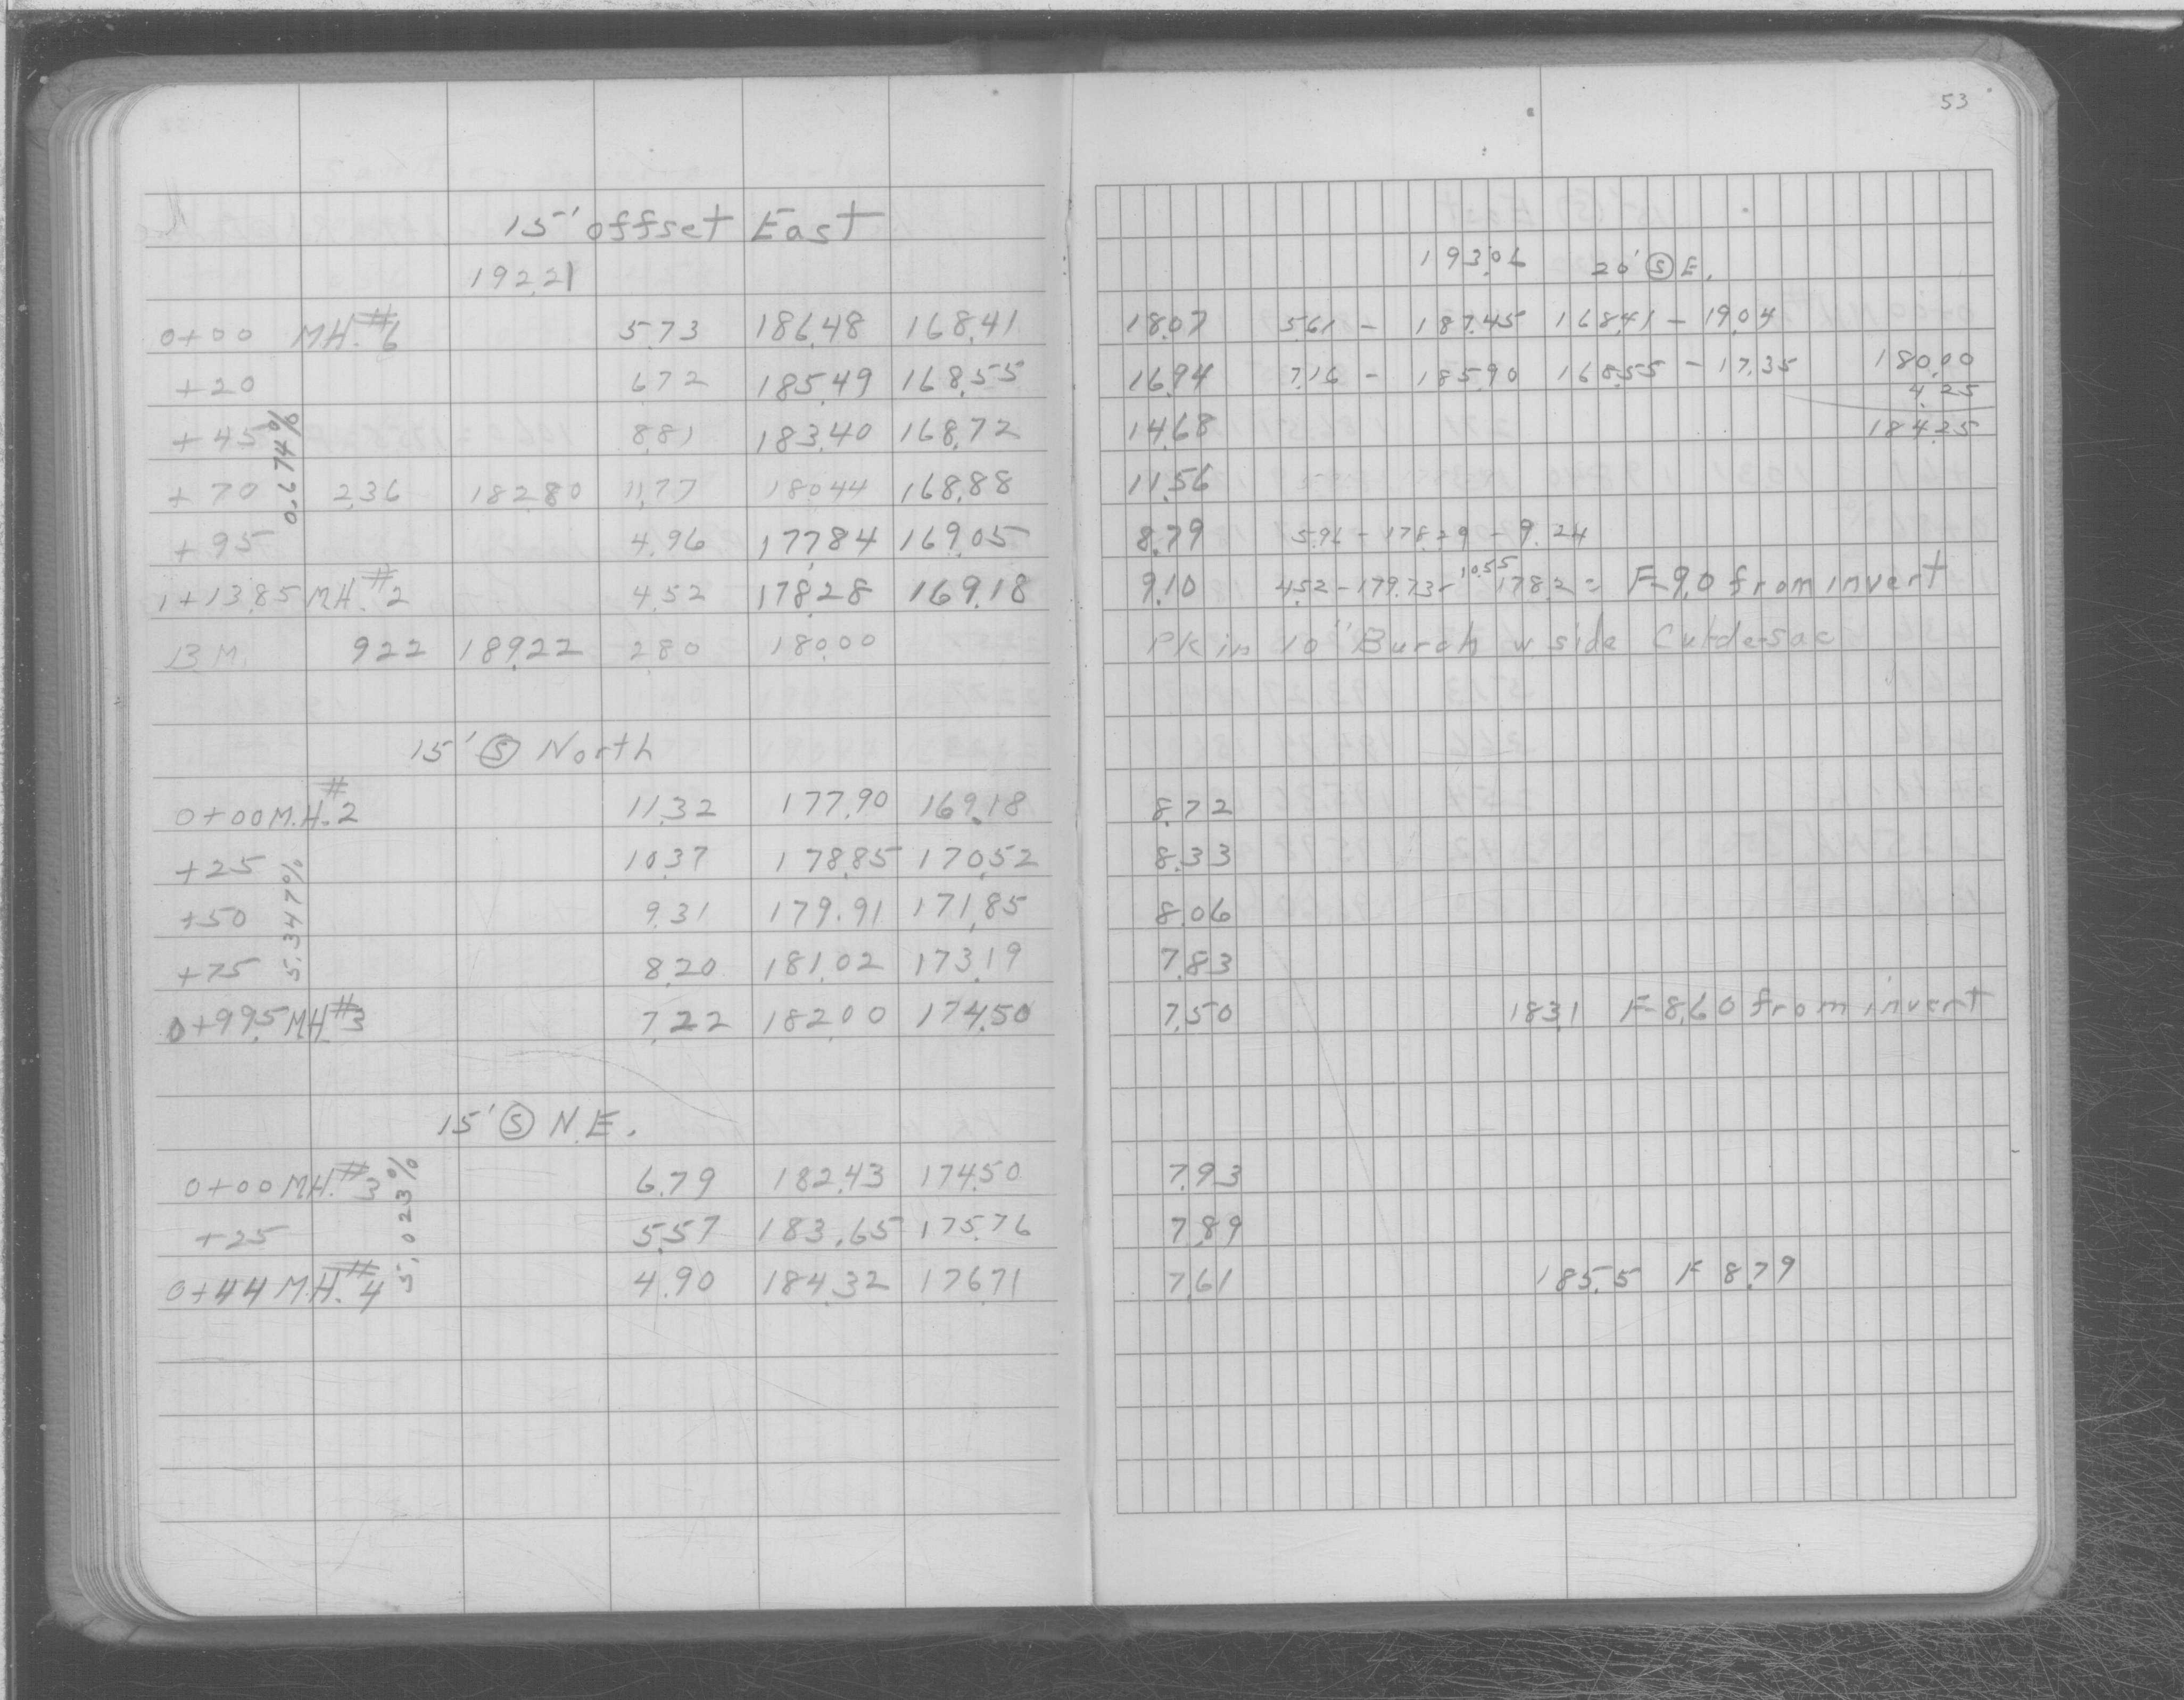 53
15' offset East
192.21 193.06 20' Ⓢ E.
0+00 MH.#6 5.73 186.48 168.41 18.07 5.61 - 187.45 168.41 - 19.04
+20 6.72 185.49 168.55 16.94 7.16 - 185.90 168.55 - 17.35 180.00
4.25
+45 8.81 183.40 168.72 14.68 184.25
0.674%
+70 2.36 182.80 11.77 180.44 168.88 11.56
+95 4.96 177.84 169.05 8.79 5.96 - 178.29 - 9.24
1+13.85 MH.#2 4.52 178.28 169.18 9.10 4.52 - 179.73 - 10.55 178.2 = F-9.0 from invert
B.M. 9.22 189.22 2.80 180.00 PK in 10" Burch w side Cul-de-sac
15' Ⓢ North
0+00 M.H.#2 11.32 177.90 169.18 8.72
+25 10.37 178.85 170.52 8.33
+50 9.31 179.91 171.85 8.06
5.347%
+75 8.20 181.02 173.19 7.83
0+99.5 MH.#3 7.22 182.00 174.50 7.50 183.1 F-8.60 from invert
15' Ⓢ N.E.
0+00 MH.#3 6.79 182.43 174.50 7.93
5.023%
+25 5.57 183.65 175.76 7.89
0+44 M.H.#4 4.90 184.32 176.71 7.61 185.5 F 8.79